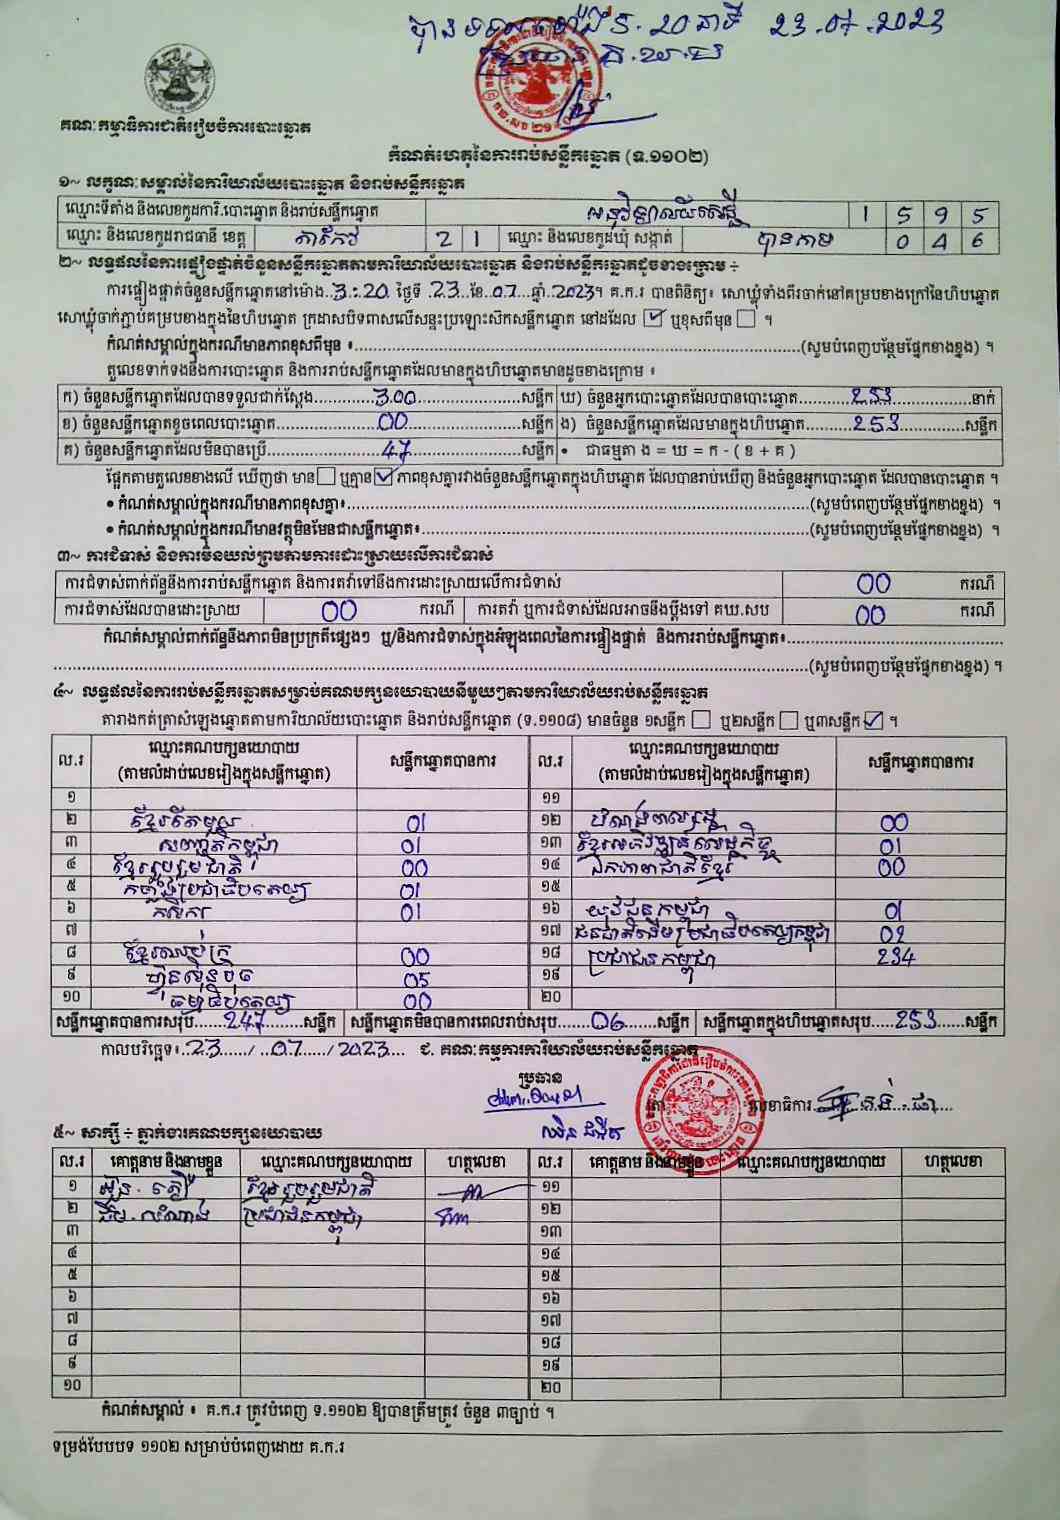 បានទទួលម៉ោង 5.20 នាទី 23.07.2023
គ.ឃ.ស
គណៈកម្មាធិការជាតិរៀបចំការបោះឆ្នោត
កំណត់ហេតុនៃការរាប់សន្លឹកឆ្នោត (ទ.១១០២)
១~ លក្ខណៈសម្គាល់នៃការិយាល័យបោះឆ្នោត និងរាប់សន្លឹកឆ្នោត
ឈ្មោះទីតាំង និងលេខកូដការិ.បោះឆ្នោត និងរាប់សន្លឹកឆ្នោត អនុវិទ្យាល័យ 1 5 9 5
ឈ្មោះ និងលេខកូដរាជធានី ខេត្ត តាកែវ 2 1 ឈ្មោះ និងលេខកូដឃុំ សង្កាត់ បានកាម 0 4 6
២~ លទ្ធផលនៃការផ្ទៀងផ្ទាត់ចំនួនសន្លឹកឆ្នោតតាមការិយាល័យបោះឆ្នោត និងរាប់សន្លឹកឆ្នោតដូចខាងក្រោម ÷
ការផ្ទៀងផ្ទាត់ចំនួនសន្លឹកឆ្នោតនៅម៉ោង 3:20 ថ្ងៃទី 23 ខែ 07 ឆ្នាំ 2023។ គ.ក.រ បានពិនិត្យ៖ សោឃ្លុំទាំងពីរចាក់នៅគម្របខាងក្រៅនៃហិបឆ្នោត
សោឃ្លុំចាក់ភ្ជាប់គម្របខាងក្នុងនៃហិបឆ្នោត ក្រដាសបិទពាសលើសន្ទះប្រឡោះស៊កសន្លឹកឆ្នោត នៅដដែល ☑ ឬខុសពីមុន ☐ ។
កំណត់សម្គាល់ក្នុងករណីមានភាពខុសពីមុន ៖ (សូមបំពេញបន្ថែមផ្នែកខាងខ្នង) ។
តួលេខទាក់ទងនឹងការបោះឆ្នោត និងការរាប់សន្លឹកឆ្នោតដែលមានក្នុងហិបឆ្នោតមានដូចខាងក្រោម ៖
ក) ចំនួនសន្លឹកឆ្នោតដែលបានទទួលជាក់ស្តែង 300 សន្លឹក ឃ) ចំនួនអ្នកបោះឆ្នោតដែលបានបោះឆ្នោត 253 នាក់
ខ) ចំនួនសន្លឹកឆ្នោតខូចពេលបោះឆ្នោត 00 សន្លឹក ង) ចំនួនសន្លឹកឆ្នោតដែលមានក្នុងហិបឆ្នោត 253 សន្លឹក
គ) ចំនួនសន្លឹកឆ្នោតដែលមិនបានប្រើ 47 សន្លឹក • ជាធម្មតា ង = ឃ = ក - ( ខ + គ )
ផ្អែកតាមតួលេខខាងលើ ឃើញថា មាន ☐ ឬគ្មាន ☑ ភាពខុសគ្នារវាងចំនួនសន្លឹកឆ្នោតក្នុងហិបឆ្នោត ដែលបានរាប់ឃើញ និងចំនួនអ្នកបោះឆ្នោត ដែលបានបោះឆ្នោត ។
• កំណត់សម្គាល់ក្នុងករណីមានភាពខុសគ្នា៖ (សូមបំពេញបន្ថែមផ្នែកខាងខ្នង) ។
• កំណត់សម្គាល់ក្នុងករណីមានវត្ថុមិនមែនជាសន្លឹកឆ្នោត៖ (សូមបំពេញបន្ថែមផ្នែកខាងខ្នង) ។
៣~ ការជំទាស់ និងការមិនយល់ព្រមតាមការដោះស្រាយលើការជំទាស់
ការជំទាស់ពាក់ព័ន្ធនឹងការរាប់សន្លឹកឆ្នោត និងការតវ៉ាទៅនឹងការដោះស្រាយលើការជំទាស់ 00 ករណី
ការជំទាស់ដែលបានដោះស្រាយ 00 ករណី ការតវ៉ា ឬការជំទាស់ដែលអាចនឹងប្តឹងទៅ គឃ.សប 00 ករណី
កំណត់សម្គាល់ពាក់ព័ន្ធនឹងភាពមិនប្រក្រតីផ្សេងៗ ឬ/និងការជំទាស់ក្នុងអំឡុងពេលនៃការផ្ទៀងផ្ទាត់ និងការរាប់សន្លឹកឆ្នោត៖
(សូមបំពេញបន្ថែមផ្នែកខាងខ្នង) ។
៤~ លទ្ធផលនៃការរាប់សន្លឹកឆ្នោតសម្រាប់គណបក្សនយោបាយនីមួយៗតាមការិយាល័យរាប់សន្លឹកឆ្នោត
តារាងកត់ត្រាសំឡេងឆ្នោតតាមការិយាល័យបោះឆ្នោត និងរាប់សន្លឹកឆ្នោត (ទ.១១០៨) មានចំនួន ១សន្លឹក ☐ ឬ២សន្លឹក ☐ ឬ៣សន្លឹក ☑ ។
ល.រ ឈ្មោះគណបក្សនយោបាយ (តាមលំដាប់លេខរៀងក្នុងសន្លឹកឆ្នោត) សន្លឹកឆ្នោតបានការ ល.រ ឈ្មោះគណបក្សនយោបាយ (តាមលំដាប់លេខរៀងក្នុងសន្លឹកឆ្នោត) សន្លឹកឆ្នោតបានការ
១ ១១
២ ខ្មែរតែមួយ 01 ១២ 00
៣ សញ្ជាតិកម្ពុជា 01 ១៣ ខ្មែរអភិវឌ្ឍន៍សេដ្ឋកិច្ច 01
៤ ខ្មែររួបរួមជាតិ 00 ១៤ ឯកភាពជាតិខ្មែរ 00
៥ កម្លាំងប្រជាធិបតេយ្យ 01 ១៥
៦ កសិករ 01 ១៦ យុវជនកម្ពុជា 01
៧ ១៧ ជនជាតិដើមប្រជាធិបតេយ្យកម្ពុជា 02
៨ ខ្មែរឈប់ក្រ 00 ១៨ ប្រជាជនកម្ពុជា 234
៩ ហ៊្វុនស៊ិនប៉ិច 05 ១៩
១០ ធម្មាធិបតេយ្យ 00 ២០
សន្លឹកឆ្នោតបានការសរុប 247 សន្លឹក សន្លឹកឆ្នោតមិនបានការពេលរាប់សរុប 06 សន្លឹក សន្លឹកឆ្នោតក្នុងហិបឆ្នោតសរុប 253 សន្លឹក
កាលបរិច្ឆេទ៖ 23 / 07 / 2023 ជ. គណៈកម្មការការិយាល័យរាប់សន្លឹកឆ្នោត
ប្រធាន
លេខាធិការ
៥~ សាក្សី ÷ ភ្នាក់ងារគណបក្សនយោបាយ
ល.រ គោត្តនាម និងនាមខ្លួន ឈ្មោះគណបក្សនយោបាយ ហត្ថលេខា ល.រ គោត្តនាម និងនាមខ្លួន ឈ្មោះគណបក្សនយោបាយ ហត្ថលេខា
១ ខ្មែររួបរួមជាតិ ១១
២ ប្រជាជនកម្ពុជា ១២
៣ ១៣
៤ ១៤
៥ ១៥
៦ ១៦
៧ ១៧
៨ ១៨
៩ ១៩
១០ ២០
កំណត់សម្គាល់ ៖ គ.ក.រ ត្រូវបំពេញ ទ.១១០២ ឱ្យបានត្រឹមត្រូវ ចំនួន ៣ច្បាប់ ។
ទម្រង់បែបបទ ១១០២ សម្រាប់បំពេញដោយ គ.ក.រ